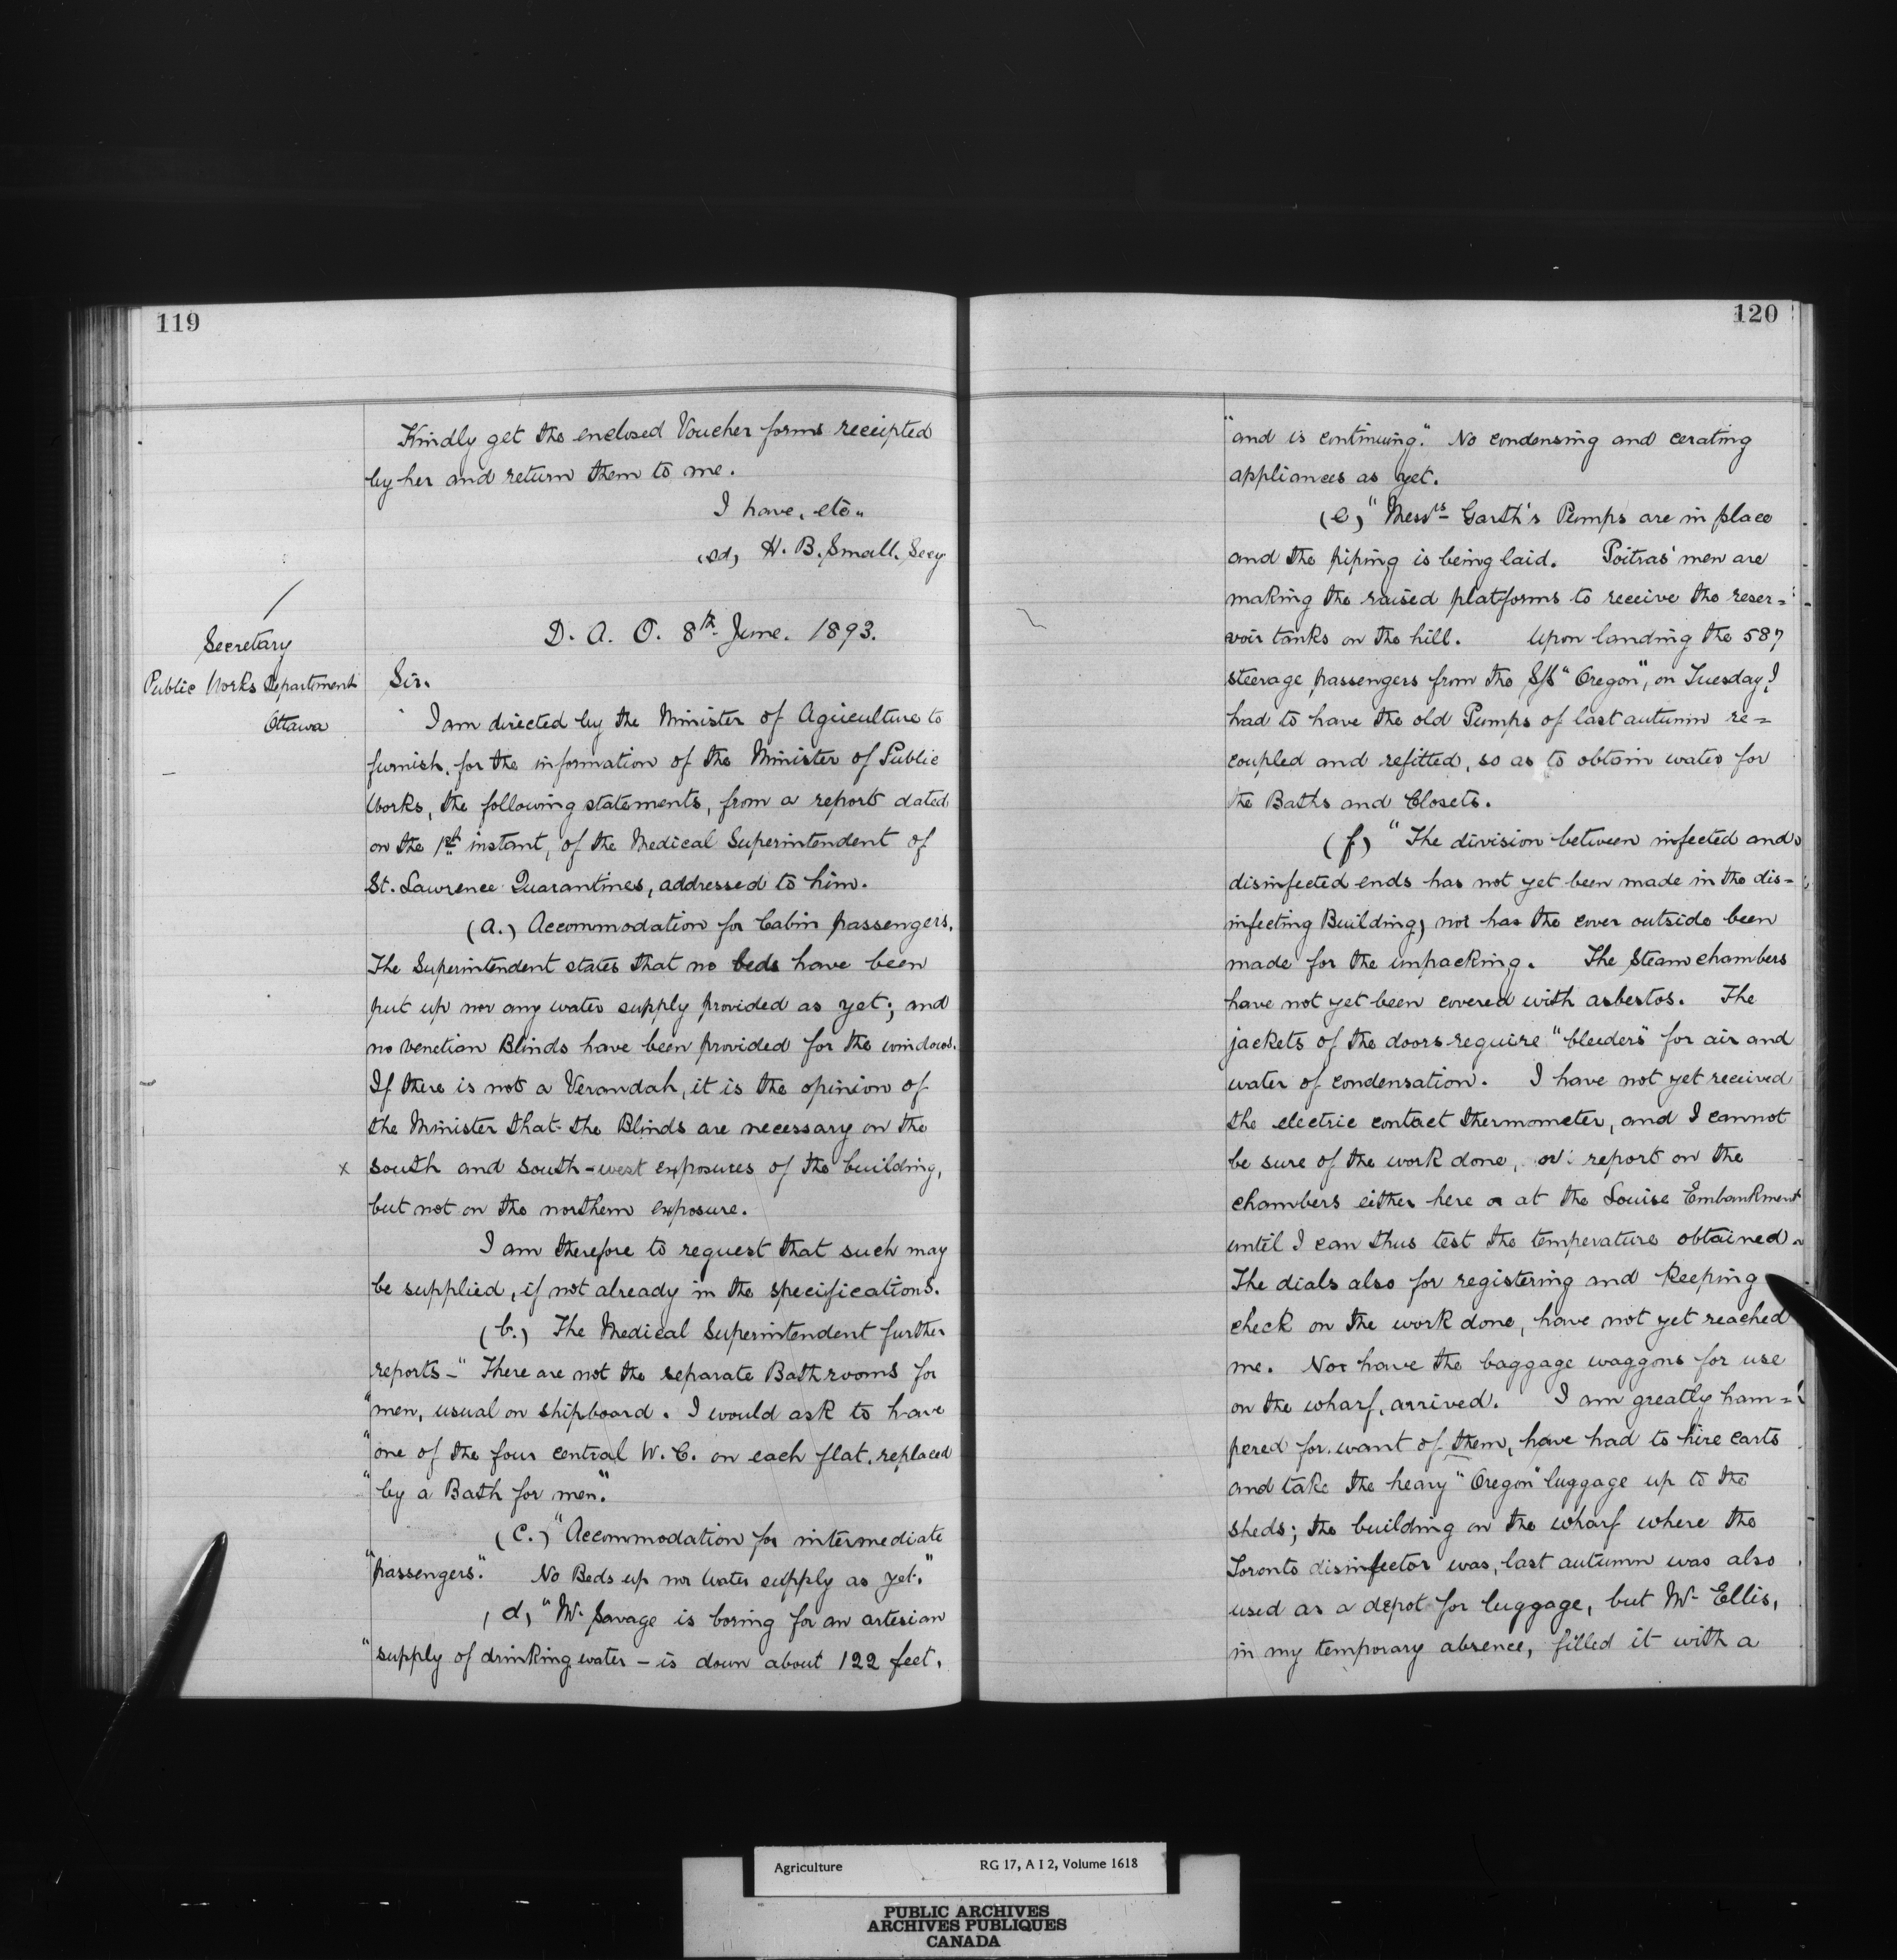 119
Kindly get the enclosed Voucher forms receipted
by her and return them to me.
I have, etc.,
(sd) H. B. Small. Secy
D. A. O. 8th June. 1893.
Secretary
Public Works Department
Ottawa
Sir.
I am directed by the Minister of Agriculture to
furnish, for the information of the Minister of Public
Works, the following statements, from a report dated
on the 1st instant, of the Medical Superintendent of
St. Lawrence Quarantines, addressed to him.
(a.) Accommodation for Cabin passengers.
The Superintendent states that no beds have been
put up nor any water supply provided as yet; and
no venetian Blinds have been provided for the windows.
If there is not a Verandah, it is the opinion of
the Minister that the Blinds are necessary on the
x south and south-west exposures of the building,
but not on the northern exposure.
I am therefore to request that such may
be supplied, if not already in the specifications.
(b.) The Medical Superintendent further
reports - "There are not the separate Bath rooms for
"men, usual on shipboard. I would ask to have
"one of the four central W. C. on each flat, replaced
"by a Bath for men."
(c.) "Accommodation for intermediate
"passengers." No Beds up nor water supply as yet."
(d) "Mr. Savage is boring for an artesian
"supply of drinking water - is down about 122 feet.
120
"and is continuing." No condensing and aerating
appliances as yet.
(e) "Messrs Garth's Pumps are in place
and the piping is being laid. Poitras' men are
making the raised platforms to receive the reser=
voir tanks on the hill. Upon landing the 587
steerage passengers from the S/S "Oregon", on Tuesday, I
had to have the old Pumps of last autumn re=
coupled and refitted, so as to obtain water for
the Baths and Closets.
(f) "The division between infected and
disinfected ends has not yet been made in the dis=
infecting Building, nor has the cover outside been
made for the unpacking. The Steam chambers
have not yet been covered with asbestos. The
jackets of the doors require "bleeders" for air and
water of condensation. I have not yet received
the electric contact thermometer, and I cannot
be sure of the work done, or report on the
chambers either here or at the Louise Embankment
until I can thus test the temperature obtained.
The dials also for registering and keeping
check on the work done, have not yet reached
me. Nor have the baggage waggons for use
on the wharf, arrived. I am greatly ham=
pered for want of them, have had to hire carts
and take the heavy "Oregon" luggage up to the
sheds; the building on the wharf where the
Toronto disinfector was, last autumn was also
used as a depot for luggage, but Mr Ellis,
in my temporary absence, filled it with a
Agriculture RG 17, A I 2, Volume 1618
PUBLIC ARCHIVES
ARCHIVES PUBLIQUES
CANADA